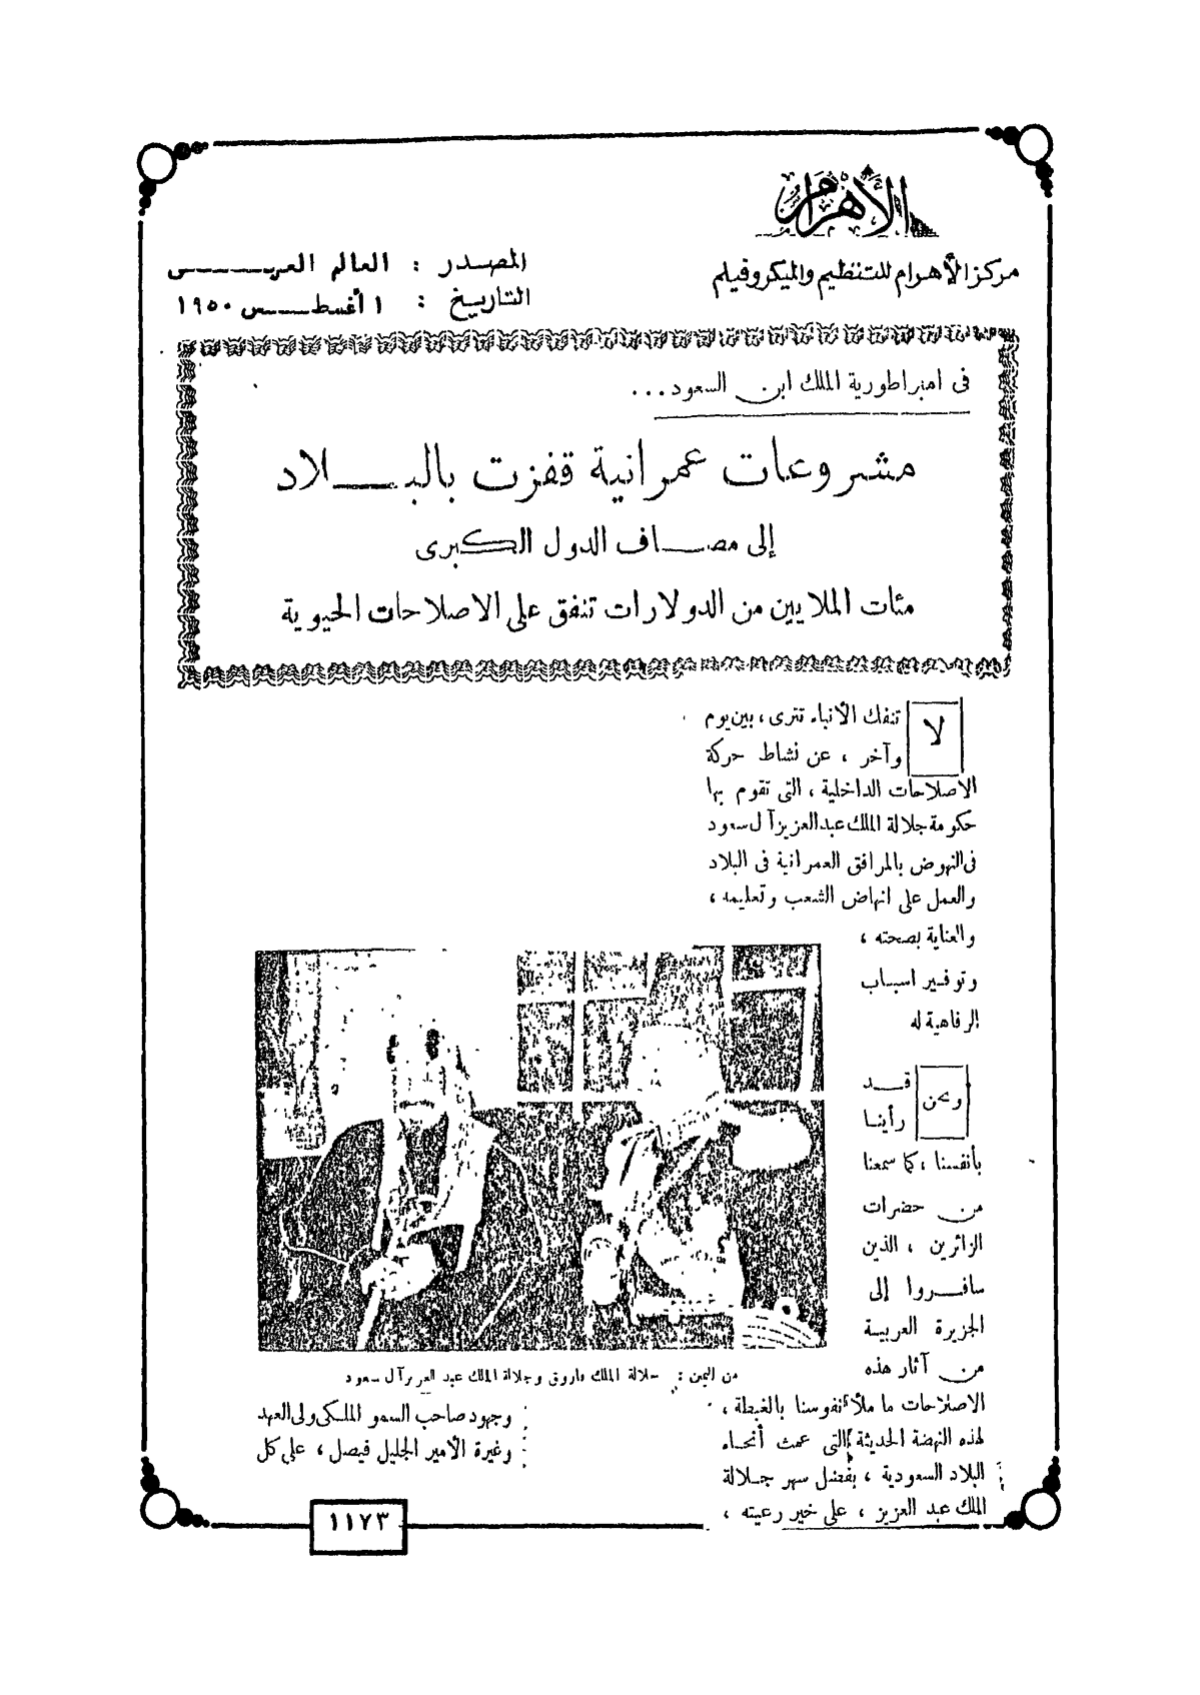 الأهرام
مركز الأهرام للتنظيم والميكروفيلم
المصدر : العالم العربى
التاريخ : ١ أغسطس ١٩٥٠
فى امبراطورية الملك ابن السعود...
مشروعات عمرانية قفزت بالبلاد
إلى مصاف الدول الكبرى
مئات الملايين من الدولارات تنفق على الاصلاحات الحيوية
لا تنفك الأنباء تترى، بين يوم
وآخر ، عن نشاط حركة
الاصلاحات الداخلية ، التى تقوم بها
حكومة جلالة الملك عبدالعزيز آل سعود
فى النهوض بالمرافق العمرانية فى البلاد
والعمل على انهاض الشعب وتعليمه ،
والعناية بصحته ،
وتوفير اسباب
الرفاهية له
ونحن قد
رأينا
بأنفسنا ، كما سمعنا
من حضرات
الزائرين ، الذين
سافروا إلى
الجزيرة العربية
من آثار هذه
الاصلاحات ما ملأ نفوسنا بالغبطة ،
لهذه النهضة الحديثة التى عمت أنحاء
البلاد السعودية ، بفضل سهر جلالة
الملك عبد العزيز ، على خير رعيته ،
من اليمين : جلالة الملك فاروق وجلالة الملك عبد العزيز آل سعود
وجهود صاحب السمو الملكى ولى العهد
وغيرة الأمير الجليل فيصل ، على كل
١١٧٣